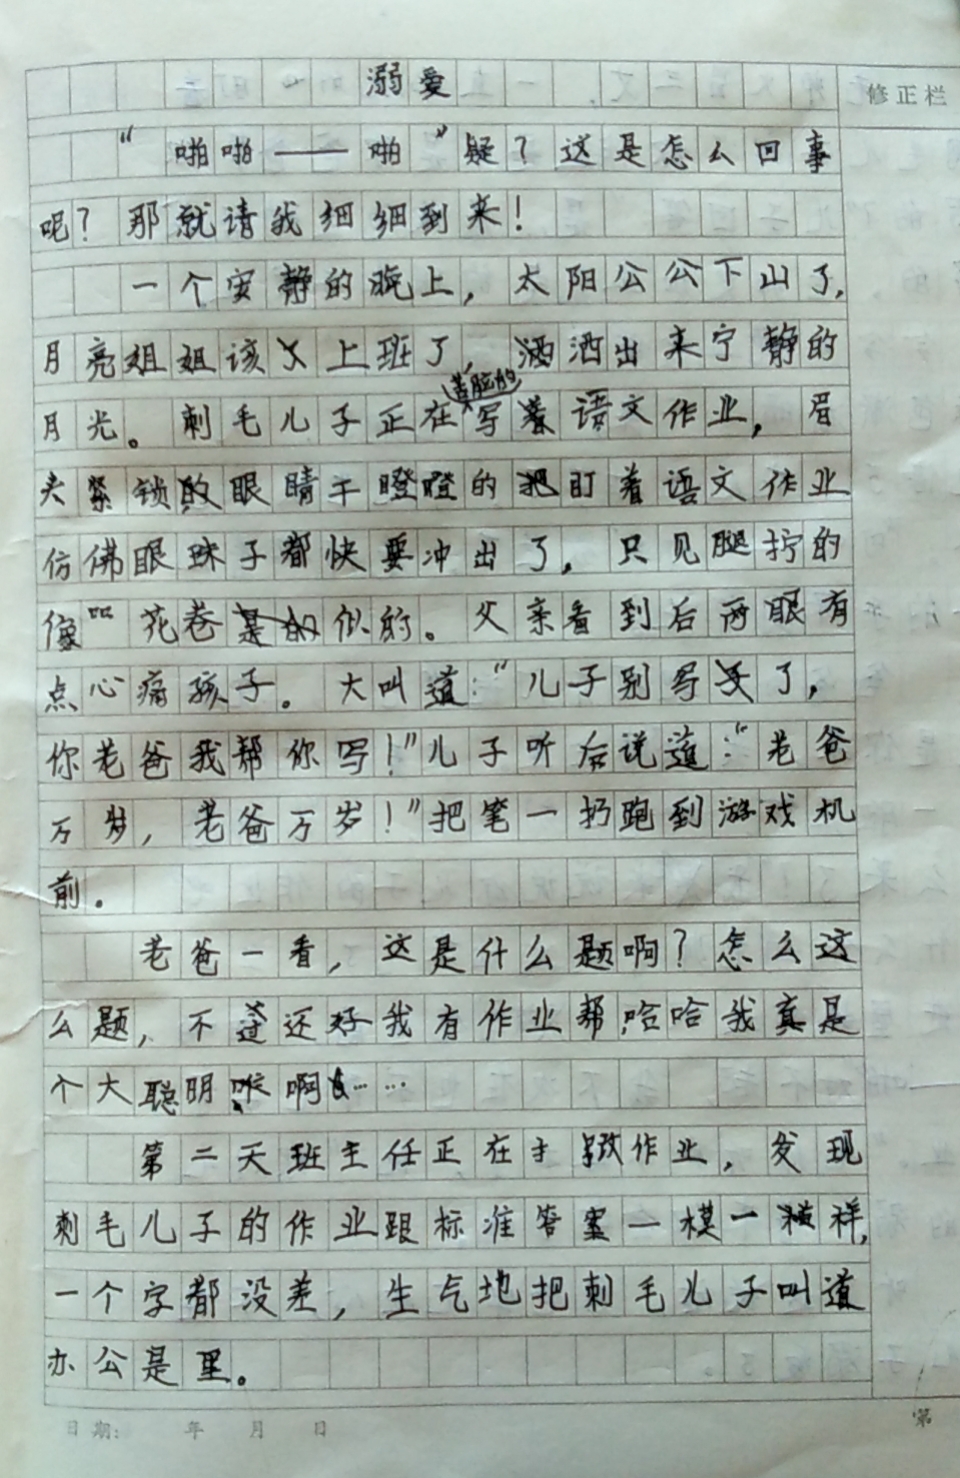 溺爱
修正栏
“啪啪——啪”疑？这是怎么回事
呢？那就请我细细到来！
一个安静的晚上，太阳公公下山了，
月亮姐姐该上班了，洒出来宁静的
月光。刺毛儿子正在苦脑的写着语文作业，眉
夹紧锁的眼睛干瞪瞪的盯着语文作业
仿佛眼珠子都快要冲出了，只见腿拧的
像花卷似的。父亲看到后两眼有
点心痛孩子。大叫道：“儿子别写了，
你老爸我帮你写！”儿子听后说道：“老爸
万岁，老爸万岁！”把笔一扔跑到游戏机
前。
老爸一看，这是什么题啊？怎么这
么题，不过还好我有作业帮，哈哈我真是
个大聪明啊……
第二天班主任正在改作业，发现
刺毛儿子的作业跟标准答案一模一样，
一个字都没差，生气地把刺毛儿子叫道
办公是里。
日期： 年 月 日
第